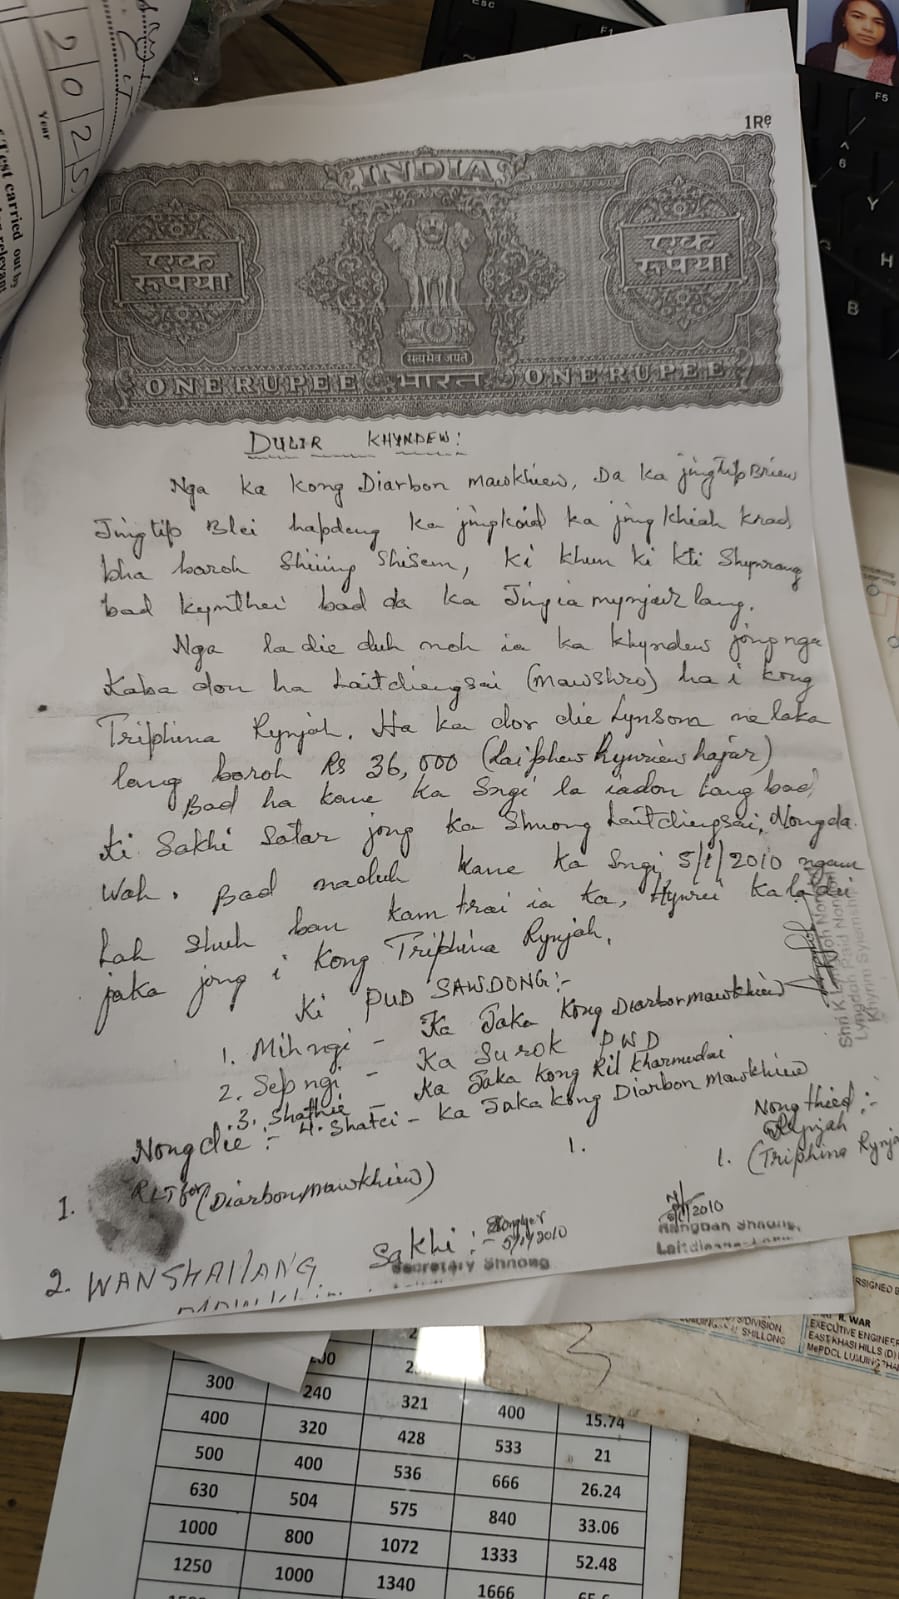 2025
Year
CTest carried out by
1Re
INDIA
एक
रूपया
एक
रूपया
सत्यमेव जयते
ONE RUPEE भारत ONE RUPEE
DULIR KHYNDEW:
Nga ka kong Diarbon Mawkhiew, Da ka jingtip Briew
Jingtip Blei hapdeng ka jingkoid ka jing khiah krad
bha baroh shiing shisem, ki khun ki kti Shynrang
bad kynthei bad da ka Jingia mynjur lang.
Nga la die duh noh ia ka khyndew jong nga
Kaba don ha Laitdiengsai (Mawshro) ha i kong
Triphina Rynjah. Ha ka dor die Lynsom na laka
lang baroh Rs 36,000 (Laiphew hynriew hajar)
Bad ha kane ka Sngi la iadon lang bad
ki Sakhi Sotar jong ka Shnong Laitdiengsai, Nongda
Wah. Bad naduh kane ka Sngi 5/1/2010 ngam
Lah shuh ban kam trai ia ka, Hynrei Ka la dei
jaka jong i Kong Triphina Rynjah.
Ki PUD SAWDONG:-
1. Mihngi - Ka Jaka Kong Diarbon Mawkhiew
2. Sepngi - Ka Surok PWD
3. Shathie - Ka Jaka Kong Ril Kharmudai
4. Shatei - Ka Jaka Kong Diarbon Mawkhiew
Nongdie :-
Nongthied :-
Rynjah
1.
1. (Triphina Rynja
1. RLTI for (Diarbon Mawkhiew)
Shri K
Khynm Syiemship
Sakhi :-
5/1/2010
Secretary Shnong
2010
Rangbah Shnong,
2. WANSHAILANG
RSIGNED
R. WAR
EXECUTIVE ENGINEER
EAST KHASI HILLS (D)
MePDCL LUMJING
DIVISION
SHILLONG
300 240 321 400 15.74
400 320 428 533 21
500 400 536 666 26.24
630 504 575 840 33.06
1000 800 1072 1333 52.48
1250 1000 1340 1666
Esc
F1
F5
^
6
Y
H
B